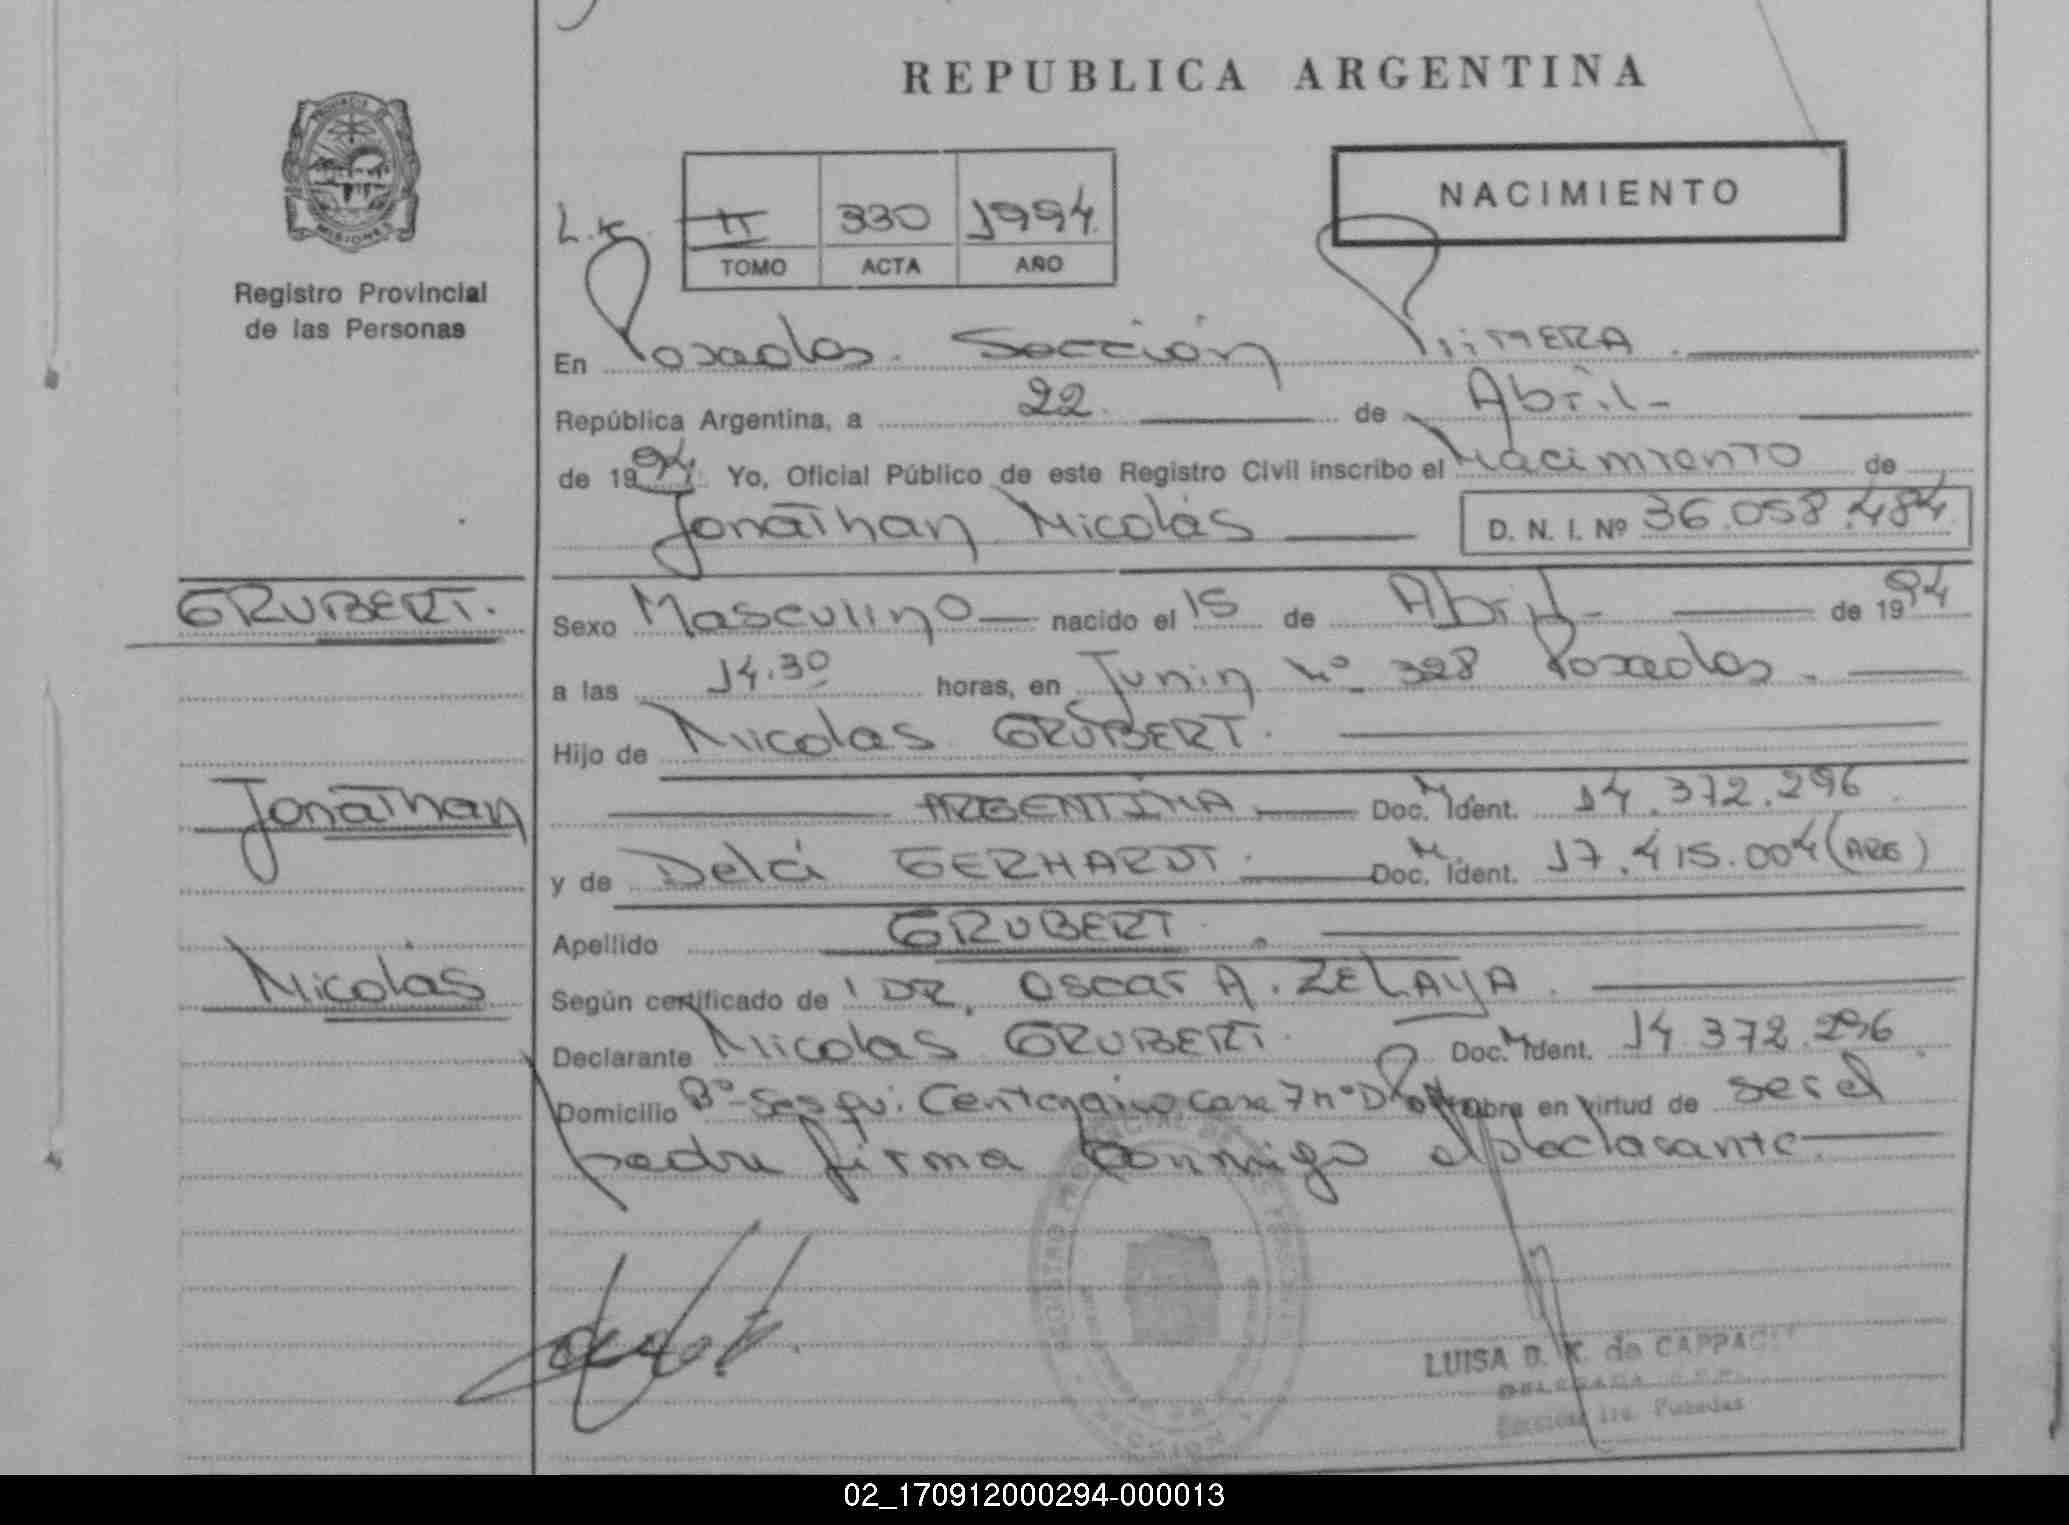 REPUBLICA ARGENTINA
NACIMIENTO
II 330 1994
TOMO ACTA AÑO
MISIONES
Registro Provincial
de las Personas
En Posadas. Sección PRIMERA.
República Argentina, a 22 de Abril-
de 1994. Yo, Oficial Público de este Registro Civil inscribo el Nacimiento de
Jonathan Nicolás D. N. I. Nº 36.058.484
GRUBERT.
Sexo Masculino nacido el 15 de Abril- de 1994
a las 14.30 horas, en Junin Nº 328 Posadas.
Hijo de Nicolas GRUBERT.
Jonathan
ARGENTINA Doc. M Ident. 14.372.296
y de Delci GERHARDT. Doc. M Ident. 17.415.004 (ARG)
Apellido GRUBERT.
Nicolás
Según certificado de DR. Oscar A. ZELAYA.
Declarante Nicolas GRUBERT. Doc. M Ident. 14.372.296
Domicilio Bº Sesqui Centenario casa 7 nº obra en virtud de ser el
padre firma conmigo el declarante
LUISA D. K. de
DELEGADA
Sección 1ra. Posadas
02_170912000294-000013